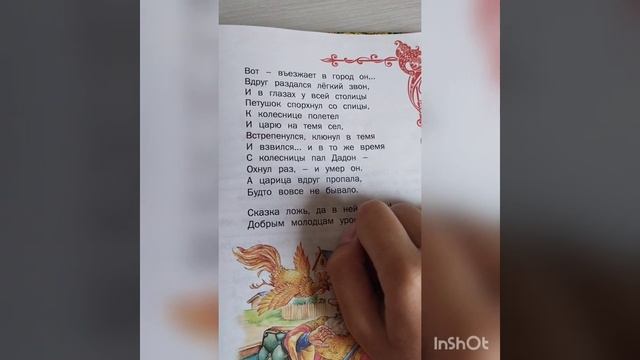 Вот – въезжает в город он...
Вдруг раздался лёгкий звон,
И в глазах у всей столицы
Петушок спорхнул со спицы,
К колеснице полетел
И царю на темя сел,
Встрепенулся, клюнул в темя
И взвился... и в то же время
С колесницы пал Дадон –
Охнул раз, – и умер он.
А царица вдруг пропала,
Будто вовсе не бывало.
Сказка ложь, да в ней
Добрым молодцам
InShOt